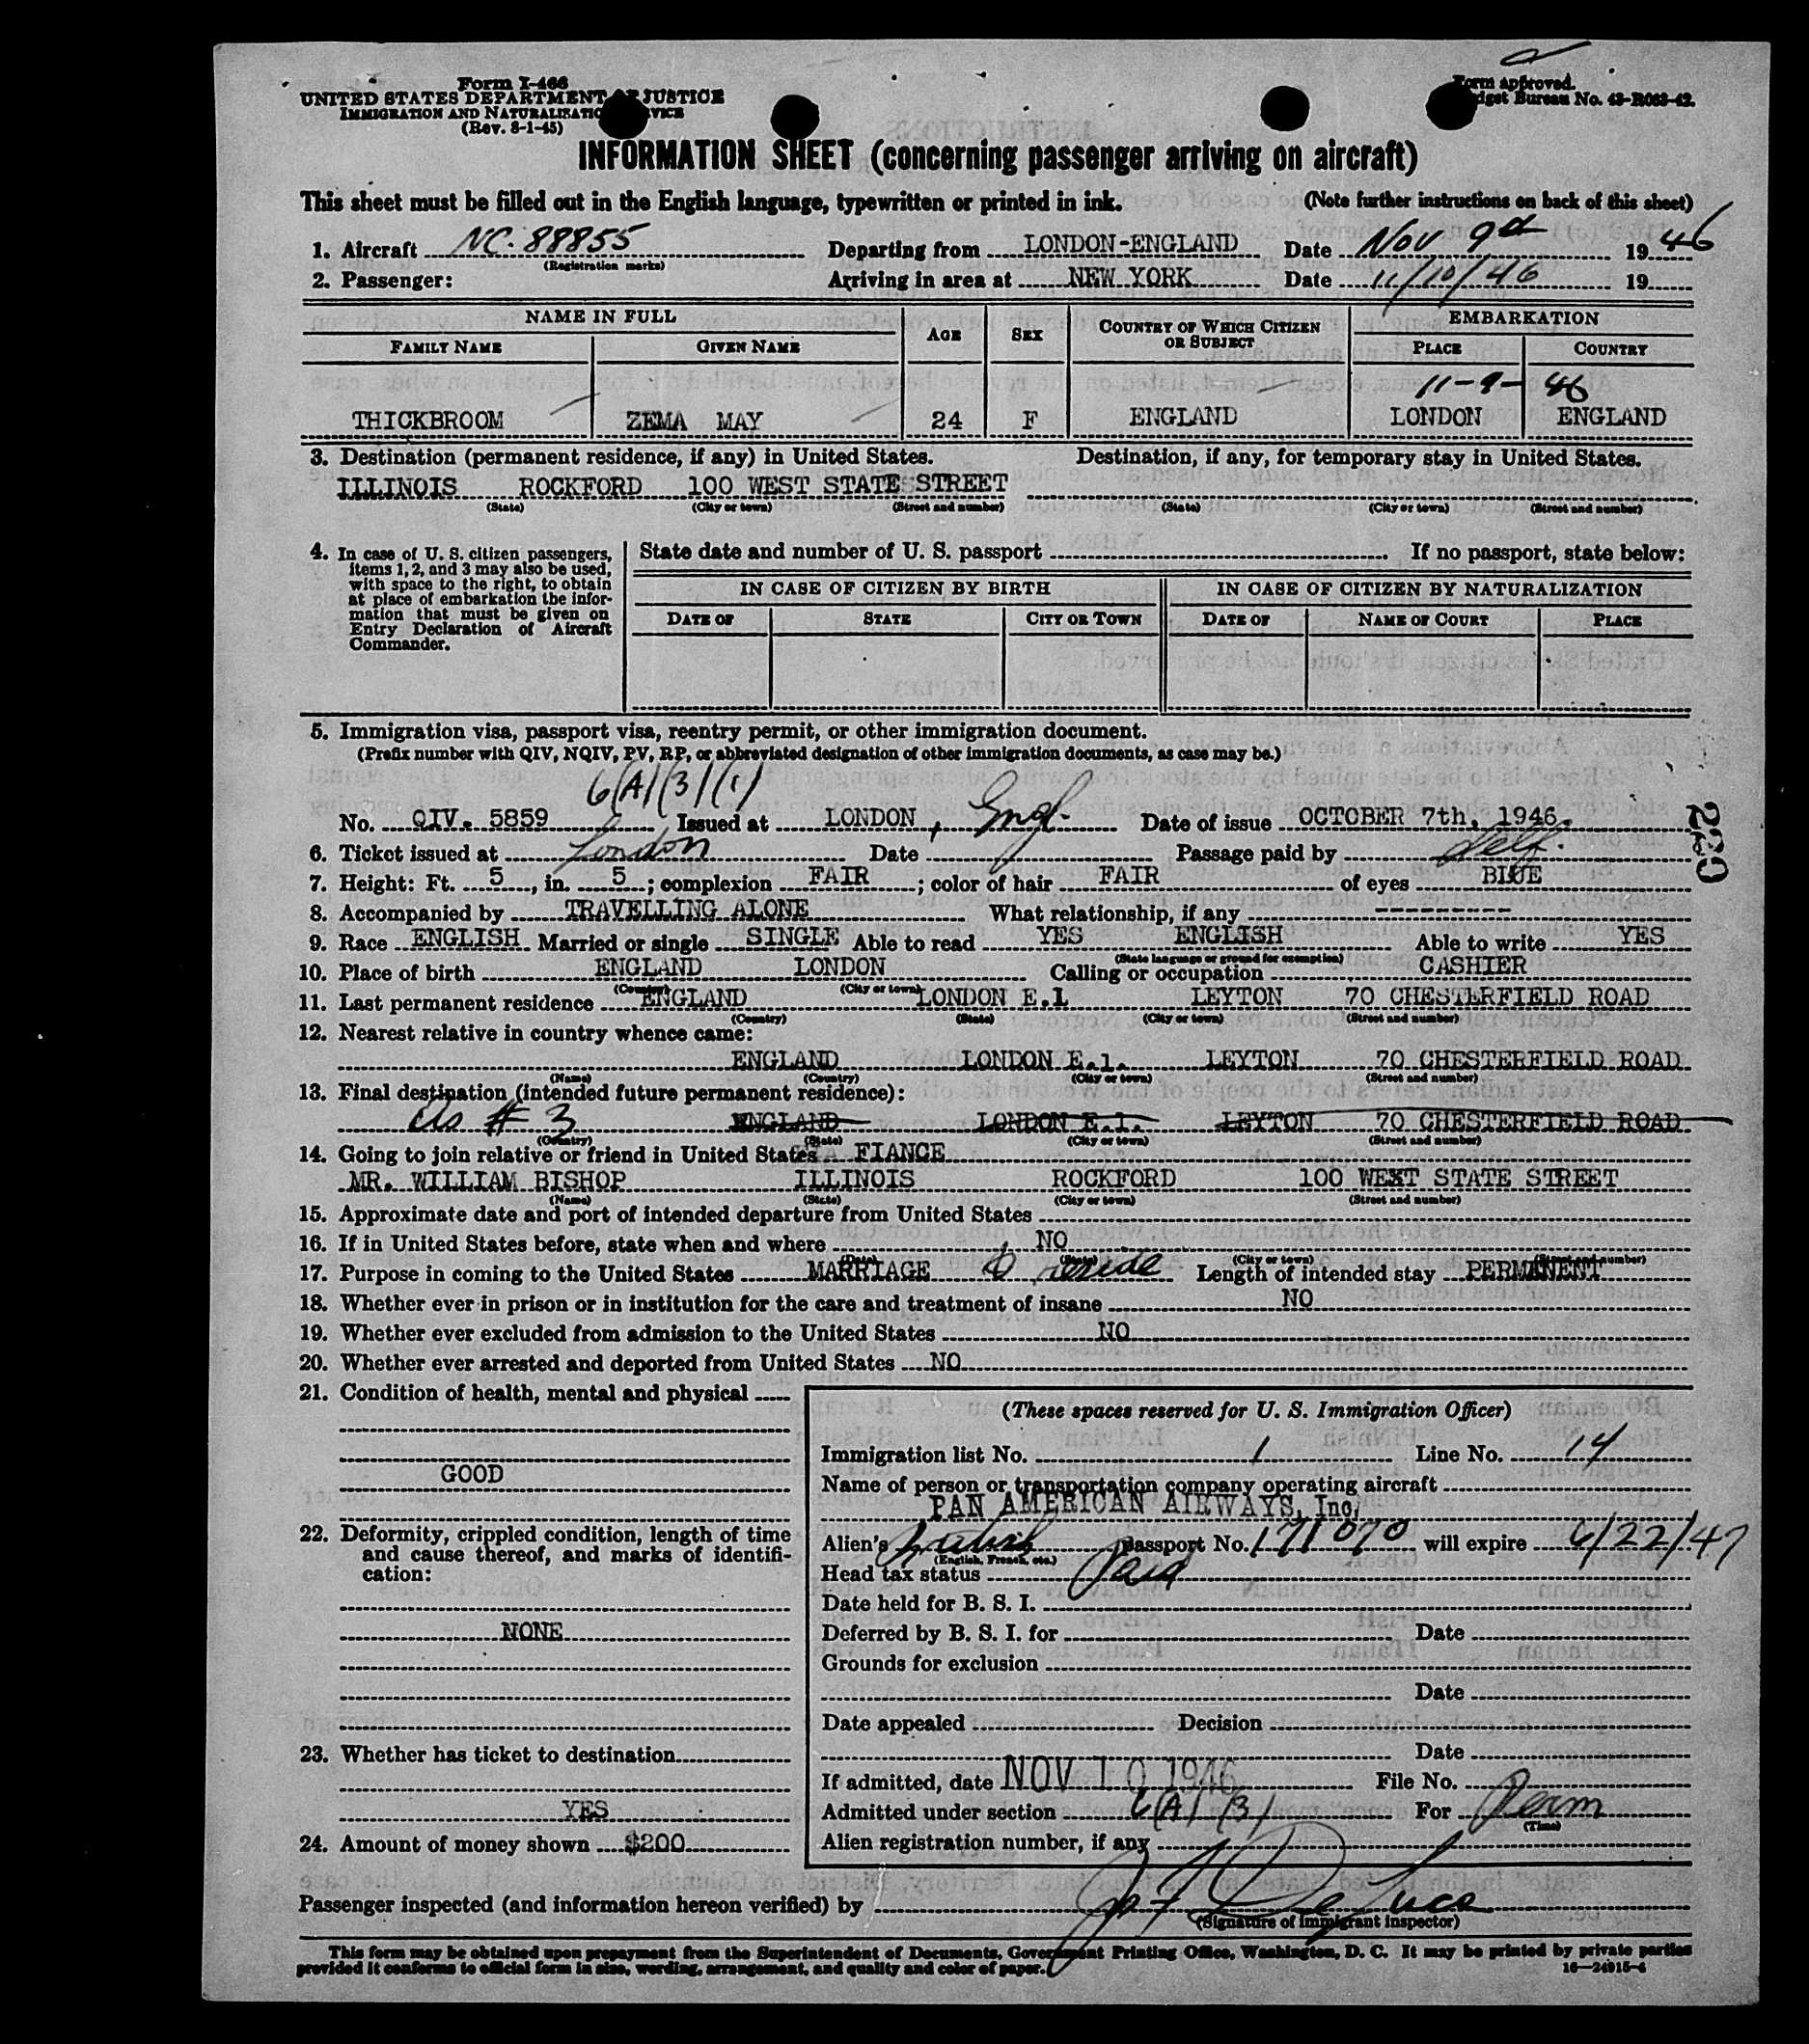 Form I-466
UNITED STATES DEPARTMENT OF JUSTICE
IMMIGRATION AND NATURALIZATION SERVICE
(Rev. 8-1-45)
Form approved.
Budget Bureau No. 43-R063-42.
INFORMATION SHEET (concerning passenger arriving on aircraft)
This sheet must be filled out in the English language, typewritten or printed in ink. (Note further instructions on back of this sheet)
1. Aircraft NC-88855 Departing from LONDON-ENGLAND Date Nov 9th 1946
(Registration marks)
2. Passenger: Arriving in area at NEW YORK Date 11/10/46 19
NAME IN FULL AGE SEX COUNTRY OF WHICH CITIZEN OR SUBJECT EMBARKATION
FAMILY NAME GIVEN NAME PLACE COUNTRY
11-9-46
THICKBROOM ZEMA MAY 24 F ENGLAND LONDON ENGLAND
3. Destination (permanent residence, if any) in United States. Destination, if any, for temporary stay in United States.
ILLINOIS ROCKFORD 100 WEST STATE STREET
(State) (City or town) (Street and number) (State) (City or town) (Street and number)
4. In case of U. S. citizen passengers, items 1, 2, and 3 may also be used, with space to the right, to obtain at place of embarkation the information that must be given on Entry Declaration of Aircraft Commander.
State date and number of U. S. passport If no passport, state below:
IN CASE OF CITIZEN BY BIRTH IN CASE OF CITIZEN BY NATURALIZATION
DATE OF STATE CITY OR TOWN DATE OF NAME OF COURT PLACE
5. Immigration visa, passport visa, reentry permit, or other immigration document.
(Prefix number with QIV, NQIV, PV, RP, or abbreviated designation of other immigration documents, as case may be.)
6(A)(3)(1)
No. QIV. 5859 Issued at LONDON, Engl. Date of issue OCTOBER 7th, 1946.
6. Ticket issued at London Date Passage paid by Self.
7. Height: Ft. 5, in. 5; complexion FAIR; color of hair FAIR of eyes BLUE
8. Accompanied by TRAVELLING ALONE What relationship, if any ---------
9. Race ENGLISH Married or single SINGLE Able to read YES ENGLISH Able to write YES
(State language or ground for exemption)
10. Place of birth ENGLAND LONDON Calling or occupation CASHIER
(Country) (City or town)
11. Last permanent residence ENGLAND LONDON E.1 LEYTON 70 CHESTERFIELD ROAD
(Country) (State) (City or town) (Street and number)
12. Nearest relative in country whence came:
ENGLAND LONDON E.1. LEYTON 70 CHESTERFIELD ROAD
(Name) (Country) (City or town) (Street and number)
13. Final destination (intended future permanent residence):
As # 3 ENGLAND LONDON E.1. LEYTON 70 CHESTERFIELD ROAD
(Country) (State) (City or town) (Street and number)
14. Going to join relative or friend in United States FIANCE
MR. WILLIAM BISHOP ILLINOIS ROCKFORD 100 WEST STATE STREET
(Name) (State) (City or town) (Street and number)
15. Approximate date and port of intended departure from United States
16. If in United States before, state when and where NO
(Date) (State) (City or town) (Street and number)
17. Purpose in coming to the United States MARRIAGE & reside Length of intended stay PERMANENT
18. Whether ever in prison or in institution for the care and treatment of insane NO
19. Whether ever excluded from admission to the United States NO
20. Whether ever arrested and deported from United States NO
21. Condition of health, mental and physical
GOOD
22. Deformity, crippled condition, length of time and cause thereof, and marks of identification:
NONE
23. Whether has ticket to destination
YES
24. Amount of money shown $200
(These spaces reserved for U. S. Immigration Officer)
Immigration list No. 1 Line No. 14
Name of person or transportation company operating aircraft
PAN AMERICAN AIRWAYS, Inc.
Alien's British Passport No. 171070 will expire 6/22/47
(English, French, etc.)
Head tax status Paid
Date held for B. S. I.
Deferred by B. S. I. for Date
Grounds for exclusion
Date
Date appealed Decision
Date
If admitted, date NOV 10 1946 File No.
Admitted under section 6(A)(3) For Perm
(Time)
Alien registration number, if any
Passenger inspected (and information hereon verified) by
(Signature of immigrant inspector)
This form may be obtained upon prepayment from the Superintendent of Documents, Government Printing Office, Washington, D. C. It may be printed by private parties
provided it conforms to official form in size, wording, arrangement, and quality and color of paper.
16—24915-4